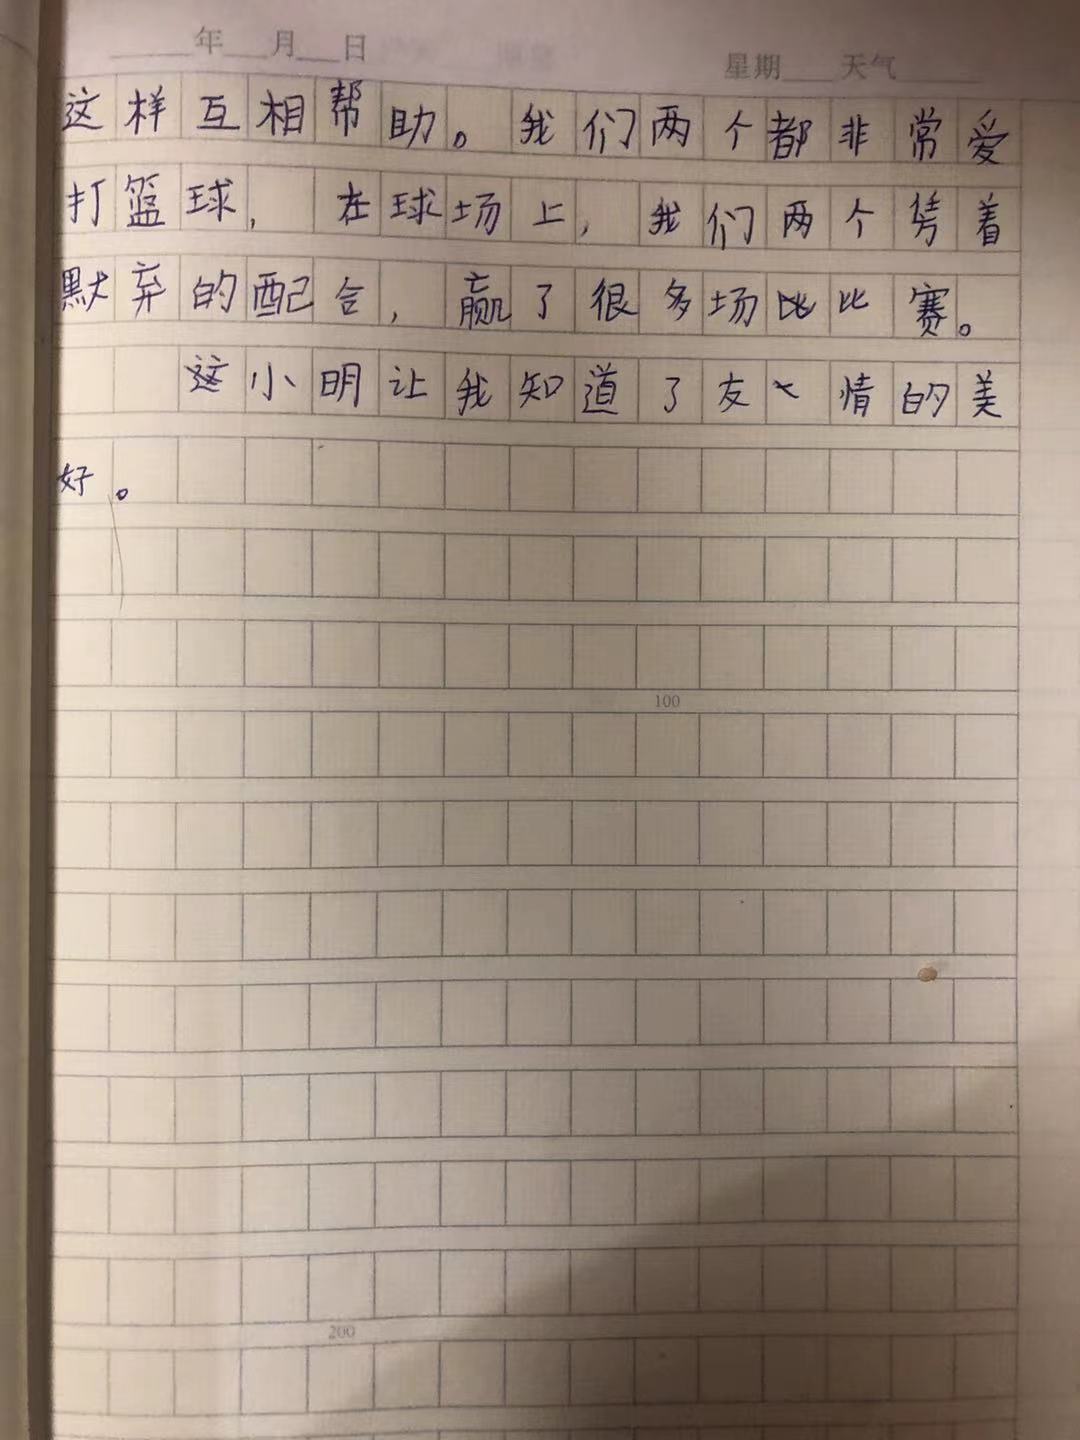 年 月 日 星期 天气
这样互相帮助。我们两个都非常爱
打篮球，在球场上，我们两个凭着
默弃的配合，赢了很多场比赛。
这小明让我知道了友情的美
好。
100
200